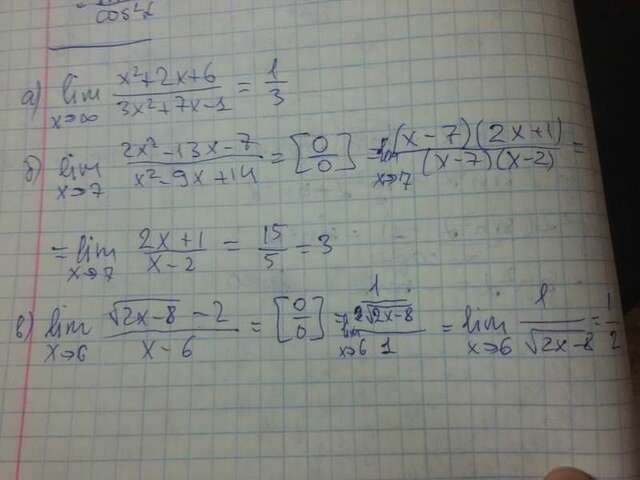 cos⁴x
а) lim x→∞ (x²+2x+6)/(3x²+7x-1) = 1/3
б) lim x→7 (2x²-13x-7)/(x²-9x+14) = [0/0] = lim x→7 ((x-7)(2x+1))/((x-7)(x-2)) =
= lim x→7 (2x+1)/(x-2) = 15/5 = 3
в) lim x→6 (√(2x-8) - 2)/(x-6) = [0/0] = lim x→6 (1/√(2x-8))/1 = lim x→6 1/√(2x-8) = 1/2